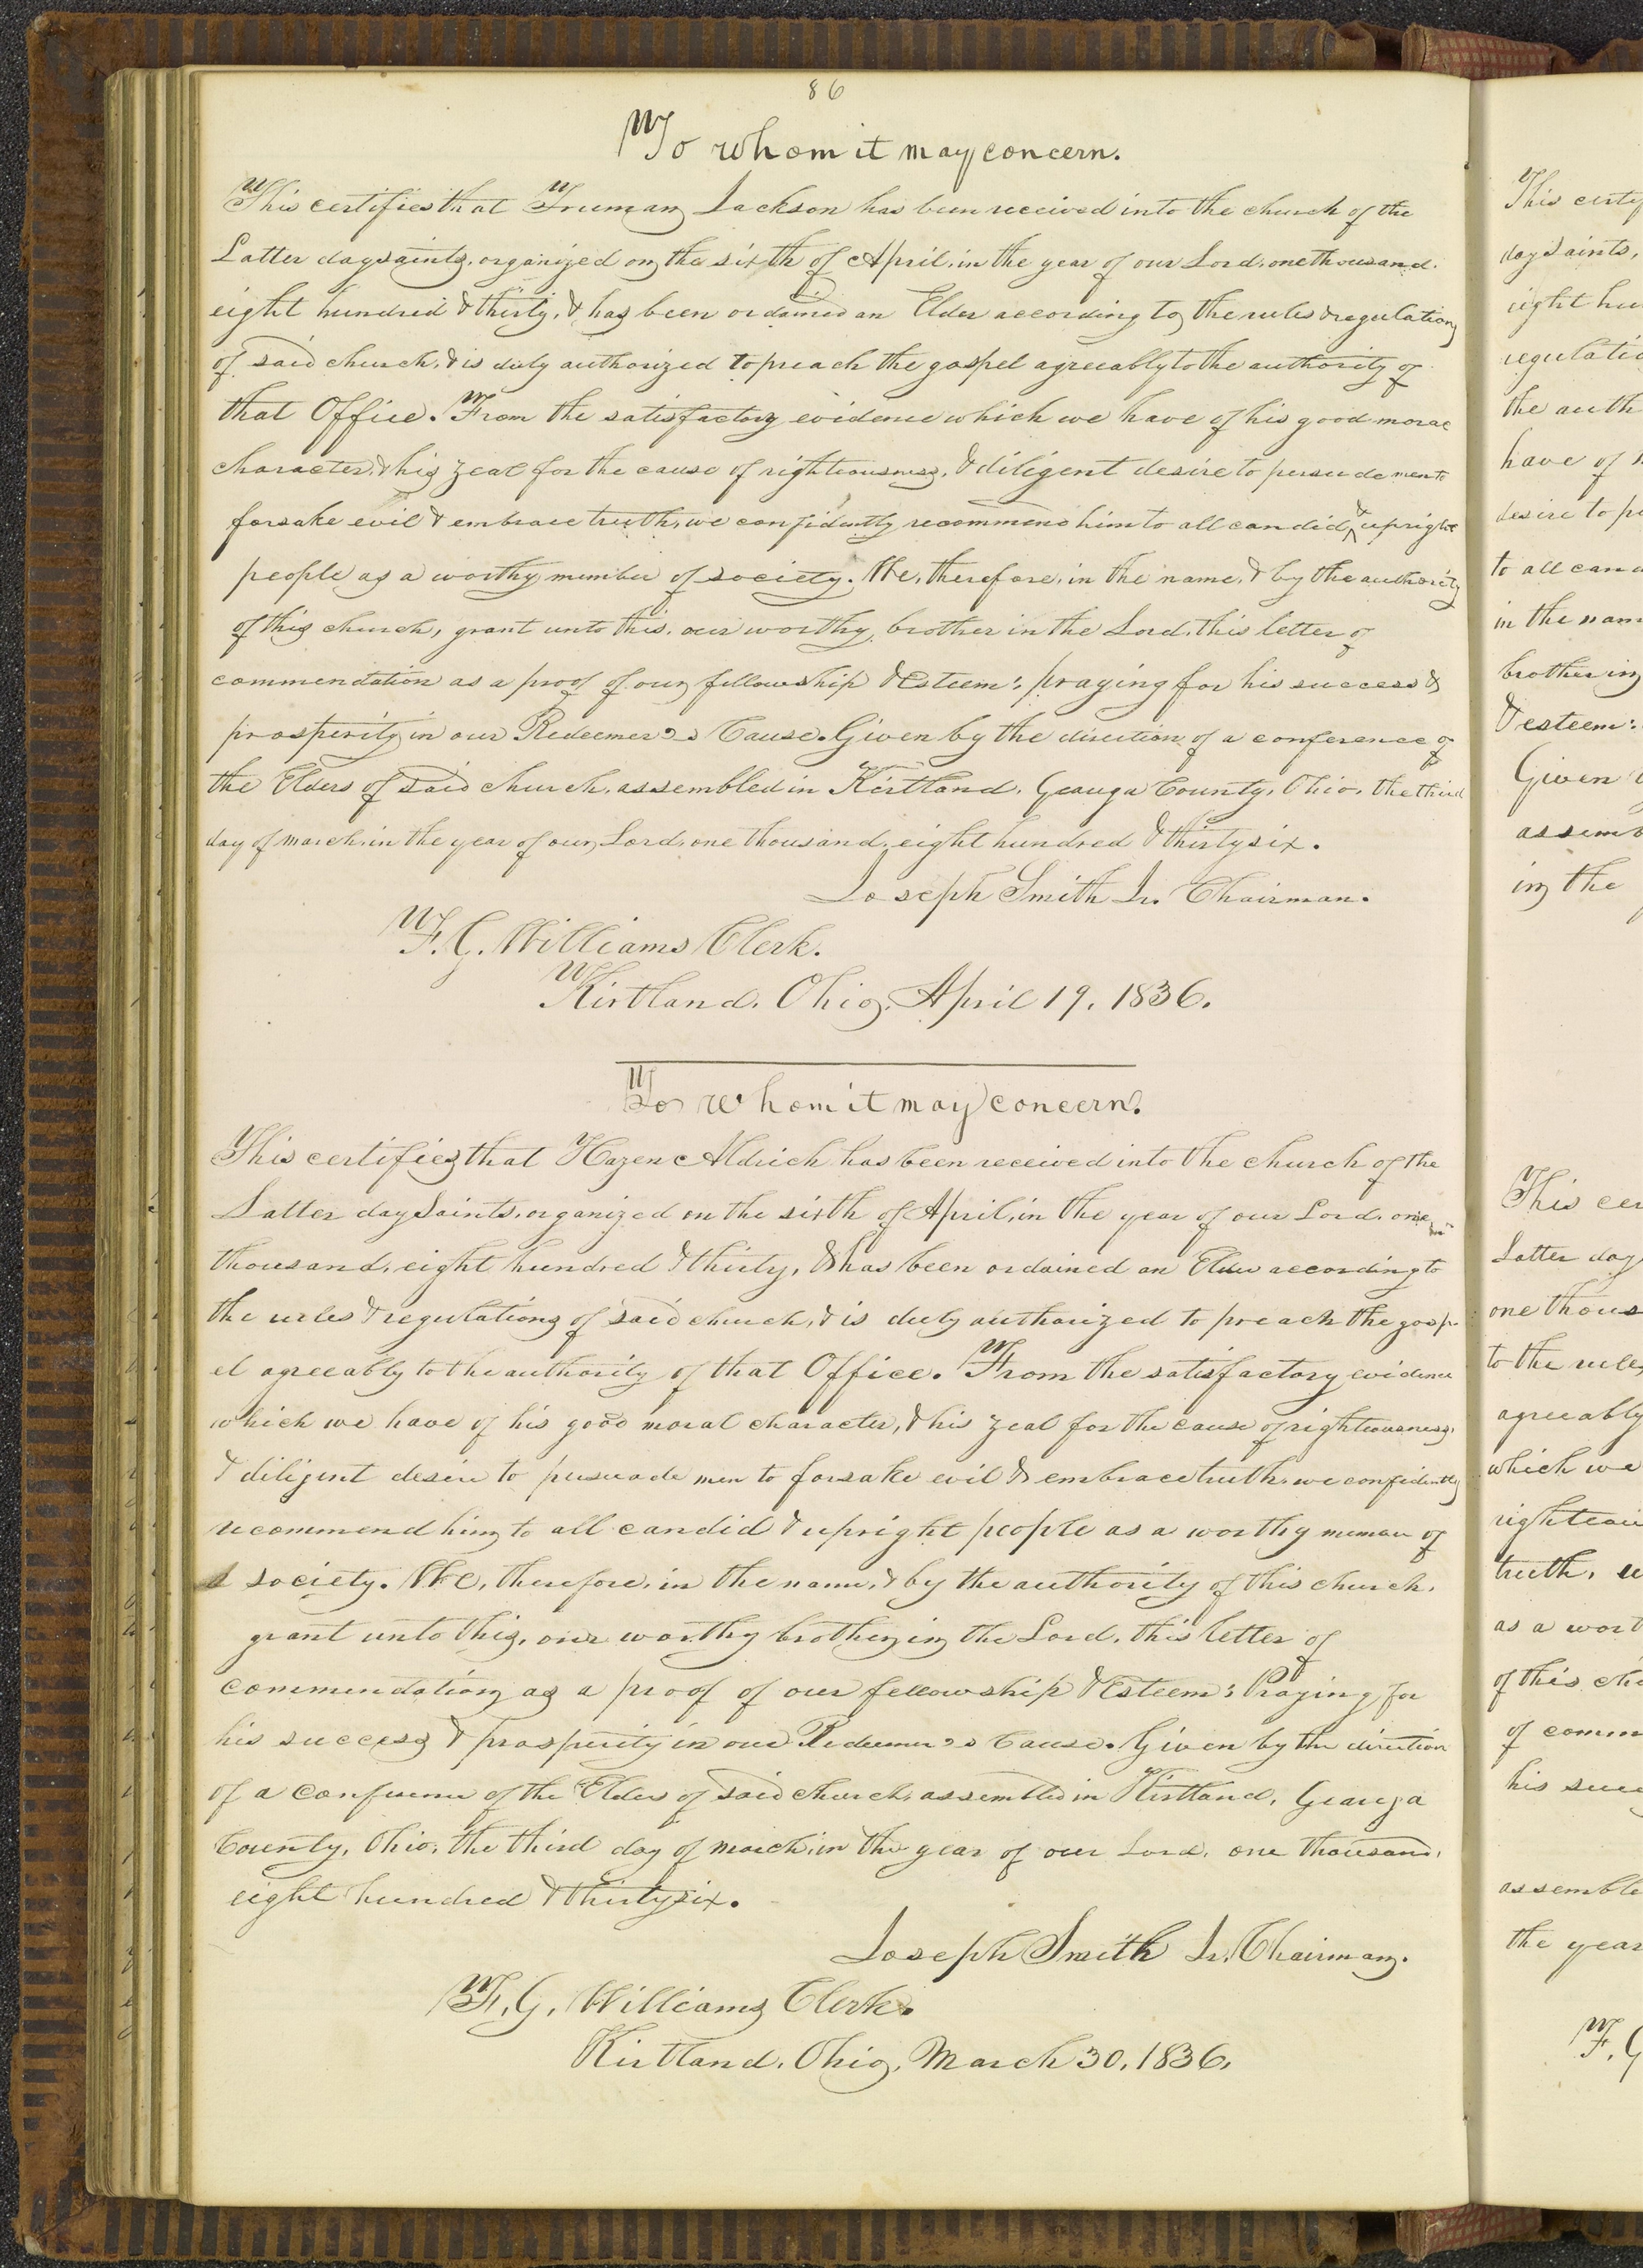 86
To whom it may concern.
This certifies that Truman Jackson has been received into the church of the
Latter day saints, organized on the sixth of April, in the year of our Lord, one thousand.
eight hundred & thirty, & has been ordained an Elder according to the rules & regulations
of said church, & is duly authorized to preach the gospel agreeably to the authority of
that Office. From the satisfactory evidence which we have of his good moral
character, & his zeal for the cause of righteousness, & diligent desire to persude men to
forsake evil & embrace truth, we confidently recommend him to all candid & upright
people as a worthy member of society. We, therefore, in the name, & by the authority
of this church, grant unto this, our worthy brother in the Lord, this letter of
commendation as a proof of our fellowship & Esteem: praying for his success &
prosperity in our Redeemer's Cause. Given by the direction of a conference of
the Elders of said church, assembled in Kirtland, Geauga County, Ohio, the third
day of march, in the year of our Lord, one thousand, eight hundred & thirty six.
Joseph Smith Jr. Chairman.
F. G. Williams Clerk.
Kirtland, Ohio, April 19, 1836.
To whom it may concern.
This certifies that Hazen Aldrich has been received into the church of the
Latter day Saints, organized on the sixth of April, in the year of our Lord, one
thousand, eight hundred & thirty, & has been ordained an Elder according to
the rules & regulations of said church, & is duly authorized to preach the gosp-
el agreeably to the authority of that Office. From the satisfactory evidence
which we have of his good moral character, & his zeal for the cause of righteousness,
& diligent desire to persuade men to forsake evil & embrace truth, we confidently
recommend him to all candid & upright people as a worthy member of
society. We, therefore, in the name, & by the authority of this church,
grant unto this, our worthy brother in the Lord, this letter of
commendation as a proof of our fellowship & Esteem; Praying for
his success & prosperity in our Redeemer's Cause. Given by the direction
of a Conference of the Elders of said church, assembled in Kirtland, Geauga
County, Ohio, the third day of march, in the year of our Lord, one thousand,
eight hundred & thirty six.
Joseph Smith Jr. Chairman.
F. G. Williams Clerk.
Kirtland, Ohio, March 30, 1836.
This certif
day Saints,
eight hu
regulatio
the auth
have of
desire to pe
to all cand
in the nam
brother in
& esteem:
Given
assemb
in the
This cer
Latter day
one thous
to the rules
agreeably
which we
righteou
truth, w
as a wort
of this chu
of comm
his succ
assemble
the year
F. G